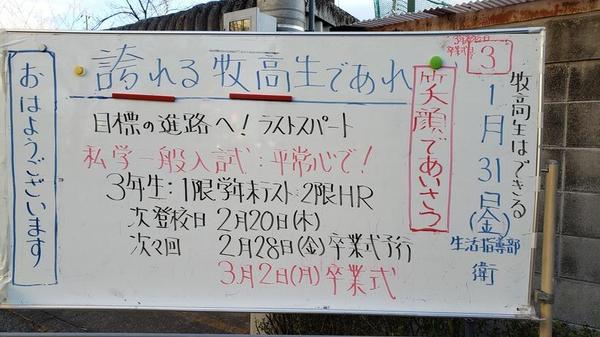 おはようございます
誇れる牧高生であれ
目標の進路へ！ラストスパート
私学一般入試：平常心で！
3年生：1限学年末テスト・2限HR
次登校日 2月20日(木)
次々回 2月28日(金)卒業式予行
3月2日(月)卒業式
笑顔であいさつ
3
1月31日(金)
牧高生はできる
生活指導部
衛